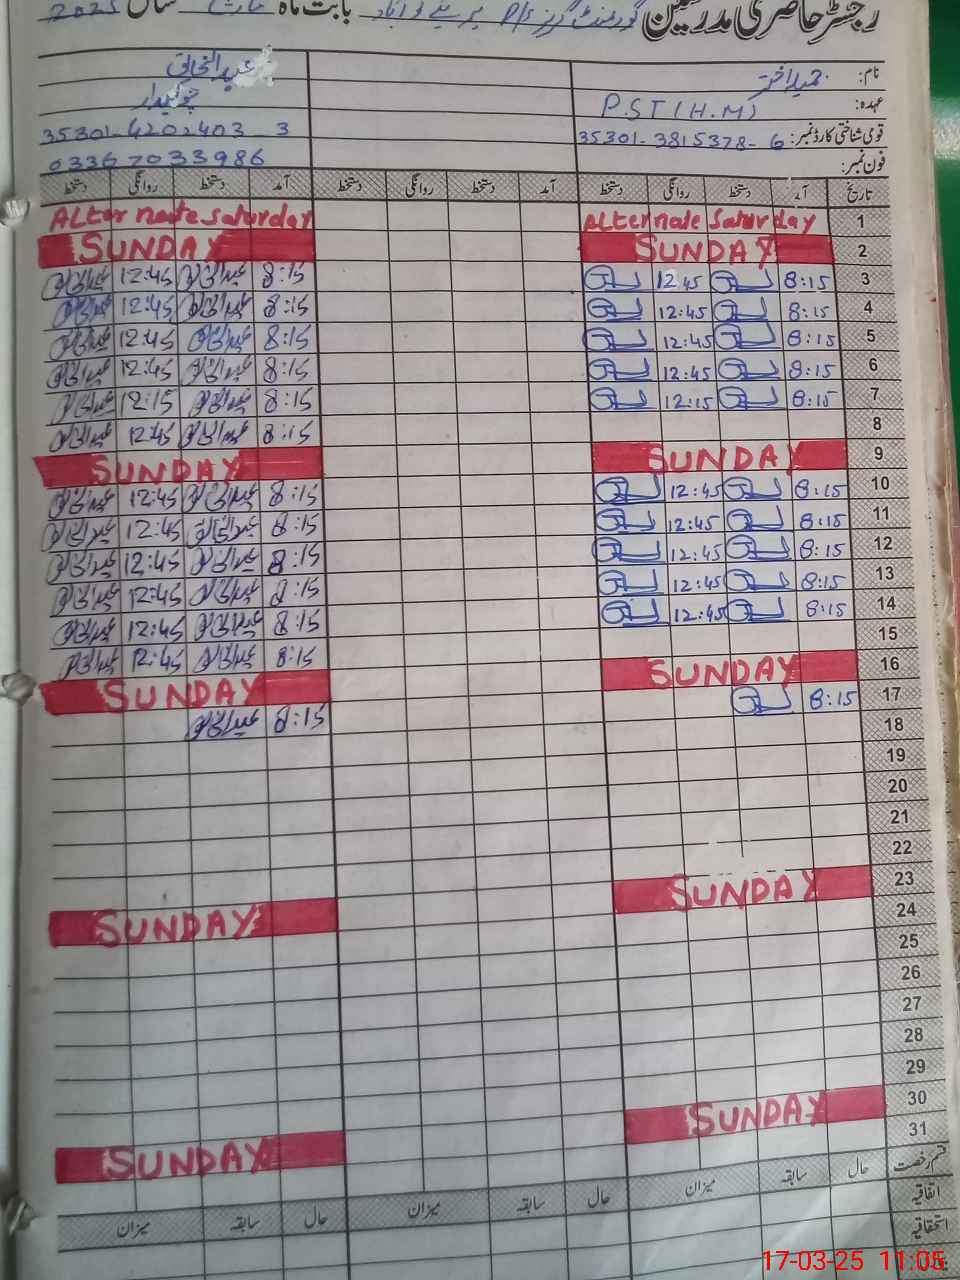 رجسٹر حاضری مدرسین گورنمنٹ گرلز P/S بابت ماہ مارچ سال 2025
نام: اختر عبدالخالق
عہدہ: P.S.T (H.M) چوکیدار
قومی شناختی کارڈ نمبر: 35301-3815378-6 35301-4202403-3
فون نمبر: 03367033986
تاریخ آمد دستخط روانگی دستخط آمد دستخط روانگی دستخط آمد دستخط روانگی دستخط
1 Alternate Saturday Alternate Saturday
2 SUNDAY SUNDAY
3 8:15 12:45 8:15 عبدالخالق 12:45 عبدالخالق
4 8:15 12:45 8:15 عبدالخالق 12:45 عبدالخالق
5 8:15 12:45 8:15 عبدالخالق 12:45 عبدالخالق
6 8:15 12:45 8:15 عبدالخالق 12:45 عبدالخالق
7 8:15 12:15 8:15 عبدالخالق 12:15 عبدالخالق
8 8:15 عبدالخالق 12:45 عبدالخالق
9 SUNDAY SUNDAY
10 8:15 12:45 8:15 عبدالخالق 12:45 عبدالخالق
11 8:15 12:45 8:15 عبدالخالق 12:45 عبدالخالق
12 8:15 12:45 8:15 عبدالخالق 12:45 عبدالخالق
13 8:15 12:45 8:15 عبدالخالق 12:45 عبدالخالق
14 8:15 12:45 8:15 عبدالخالق 12:45 عبدالخالق
15 8:15 عبدالخالق 12:45 عبدالخالق
16 SUNDAY SUNDAY
17 8:15 8:15 عبدالخالق
18
19
20
21
22
23 SUNDAY SUNDAY
24
25
26
27
28
29
30 SUNDAY SUNDAY
31
قسم رخصت حال سابقہ میزان حال سابقہ میزان حال سابقہ میزان
اتفاقیہ
استحقاقیہ
17-03-25 11:05